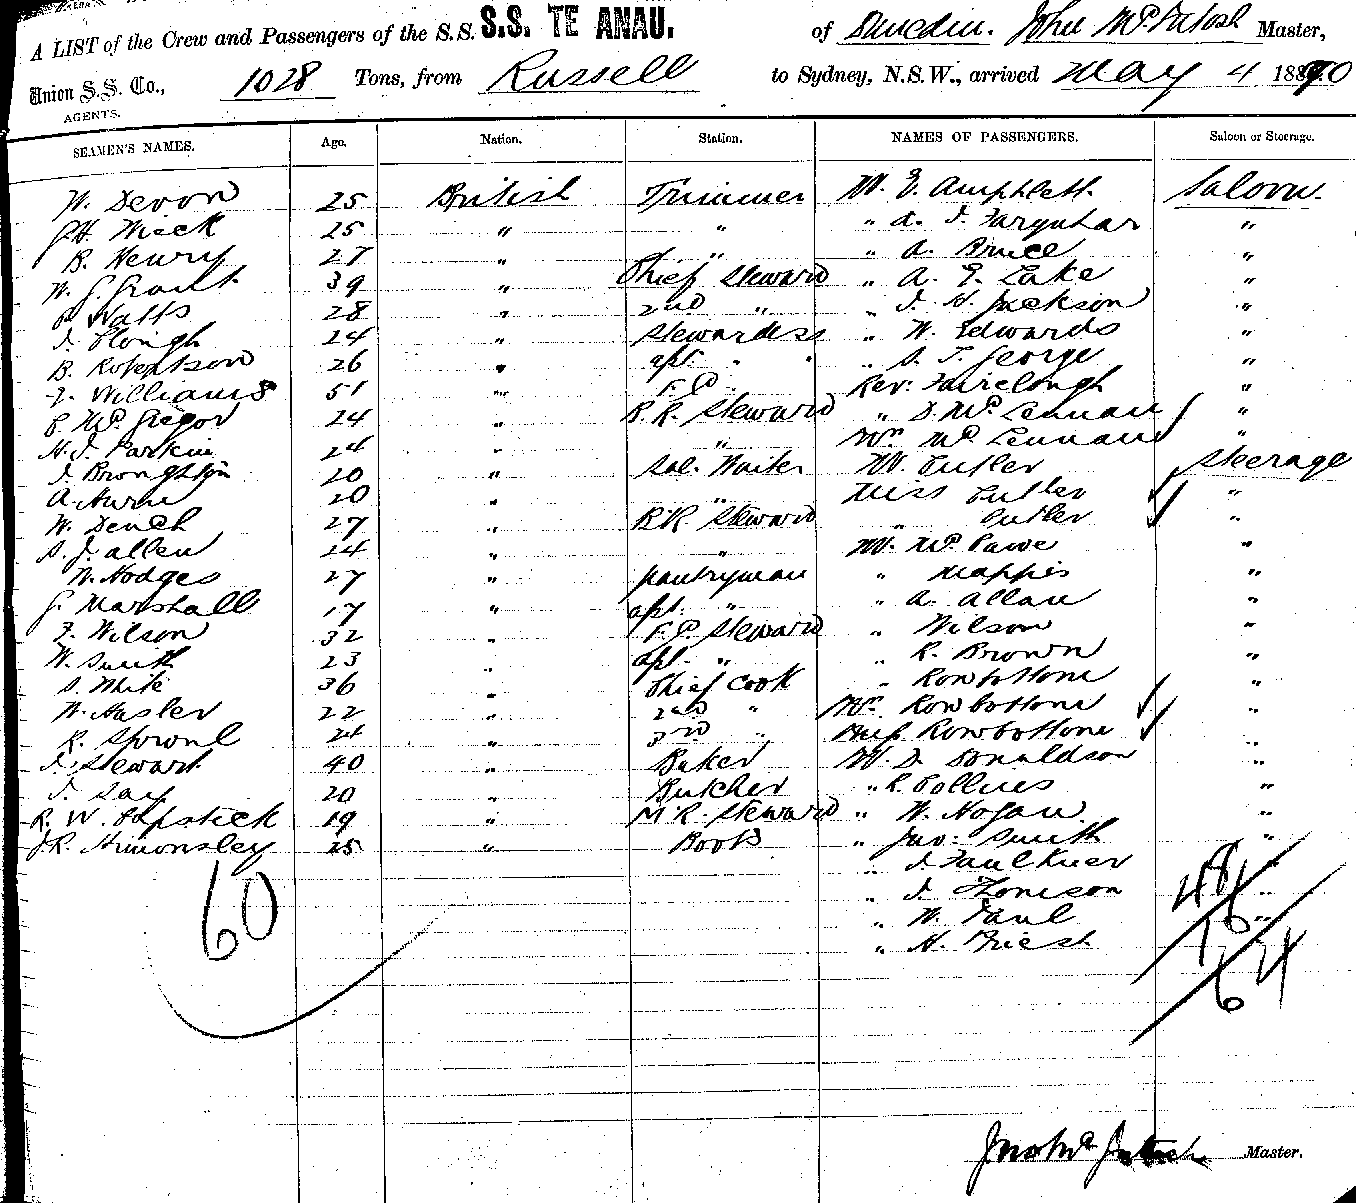 A LIST of the Crew and Passengers of the S.S. S.S. TE ANAU. of Dunedin. John McIntosh Master,
Union S.S. Co., 1028 Tons, from Russell to Sydney, N.S.W., arrived May 4 1890
AGENTS.
SEAMEN'S NAMES. Age. Nation. Station. NAMES OF PASSENGERS. Saloon or Steerage.
W. Devon 25 British Trimmer Mr. E. Amphlett Saloon.
25 " " " A. J. Farquhar "
B. Henry 27 " " " A. Bruce "
W. G. Grant 39 " Chief Steward " A. E. Lake "
Watts 28 " 2nd " " J. H. Jackson "
J. Clough 24 " Stewardess " W. Edwards "
B. Robertson 26 " " " " S. T. George "
Williams 51 " F.C. " Rev. Fairclough "
McGregor 24 " R.R. Steward " D. McLennan "
H. J. Parkin 24 " " Mrs McLennan "
J. Broughton 20 " Sal. Waiter Mr. Cutler Steerage
A. Hurn 20 " " Miss Cutler "
W. Dench 27 " R.R. Steward " Cutler "
S. J. Allen 24 " " Mr. "
W. Hodges 27 " Pantryman " Mappis "
G. Marshall 17 " " " A. Allan "
Wilson 32 " F.C. Steward " Wilson "
W. Smith 23 " " " R. Brown "
S. White 36 " Chief Cook " Rowbottone "
W. Hasler 22 " 2nd " Mrs Rowbottone "
R. Sproul 24 " 3rd " Miss Rowbottone "
J. Stewart 40 " Baker Mr. D. Donaldson "
J. Say 20 " Butcher " R. Collins "
R. W. Lipstick 19 " M.R. Steward " W. Hogan "
25 " Boots " Jno. Smith "
" J. Faulkner "
" J. Thomson "
" W. Paul "
" H. Priest
60
48
16
64
Jno McIntosh Master.